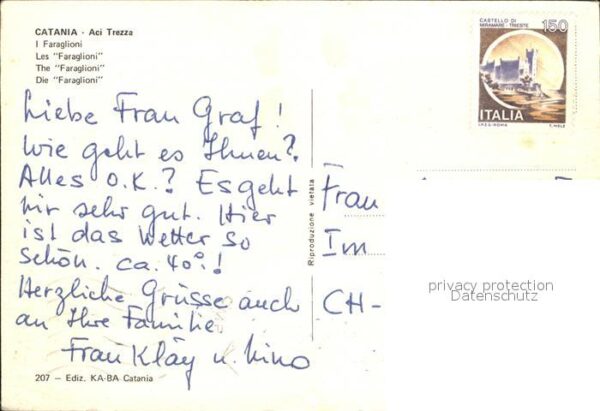 CATANIA - Aci Trezza
I Faraglioni
Les "Faraglioni"
The "Faraglioni"
Die "Faraglioni"
CASTELLO DI
MIRAMARE - TRIESTE
150
ITALIA
I.P.Z.S. ROMA
Liebe Frau Graf!
Wie geht es Ihnen?
Alles O.K.? Es geht
mir sehr gut. Hier
ist das Wetter so
schön. ca. 40°!
Herzliche Grüsse auch
an Ihre Familie
Frau Kläy u. Nino
207 - Ediz. KA-BA Catania
Riproduzione vietata
Frau
Im
CH-
privacy protection
Datenschutz